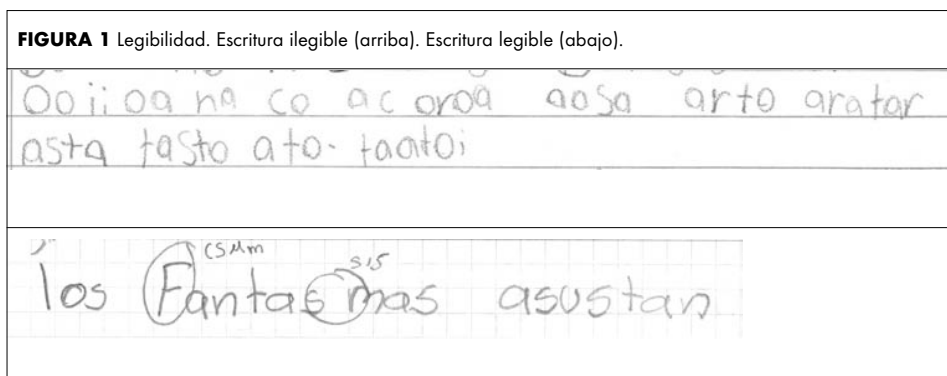 FIGURA 1 Legibilidad. Escritura ilegible (arriba). Escritura legible (abajo).
Oo ii oa na co ac oroa aosa arto aratar
asta tasto ato. taatoi
los Fantasmas asustan